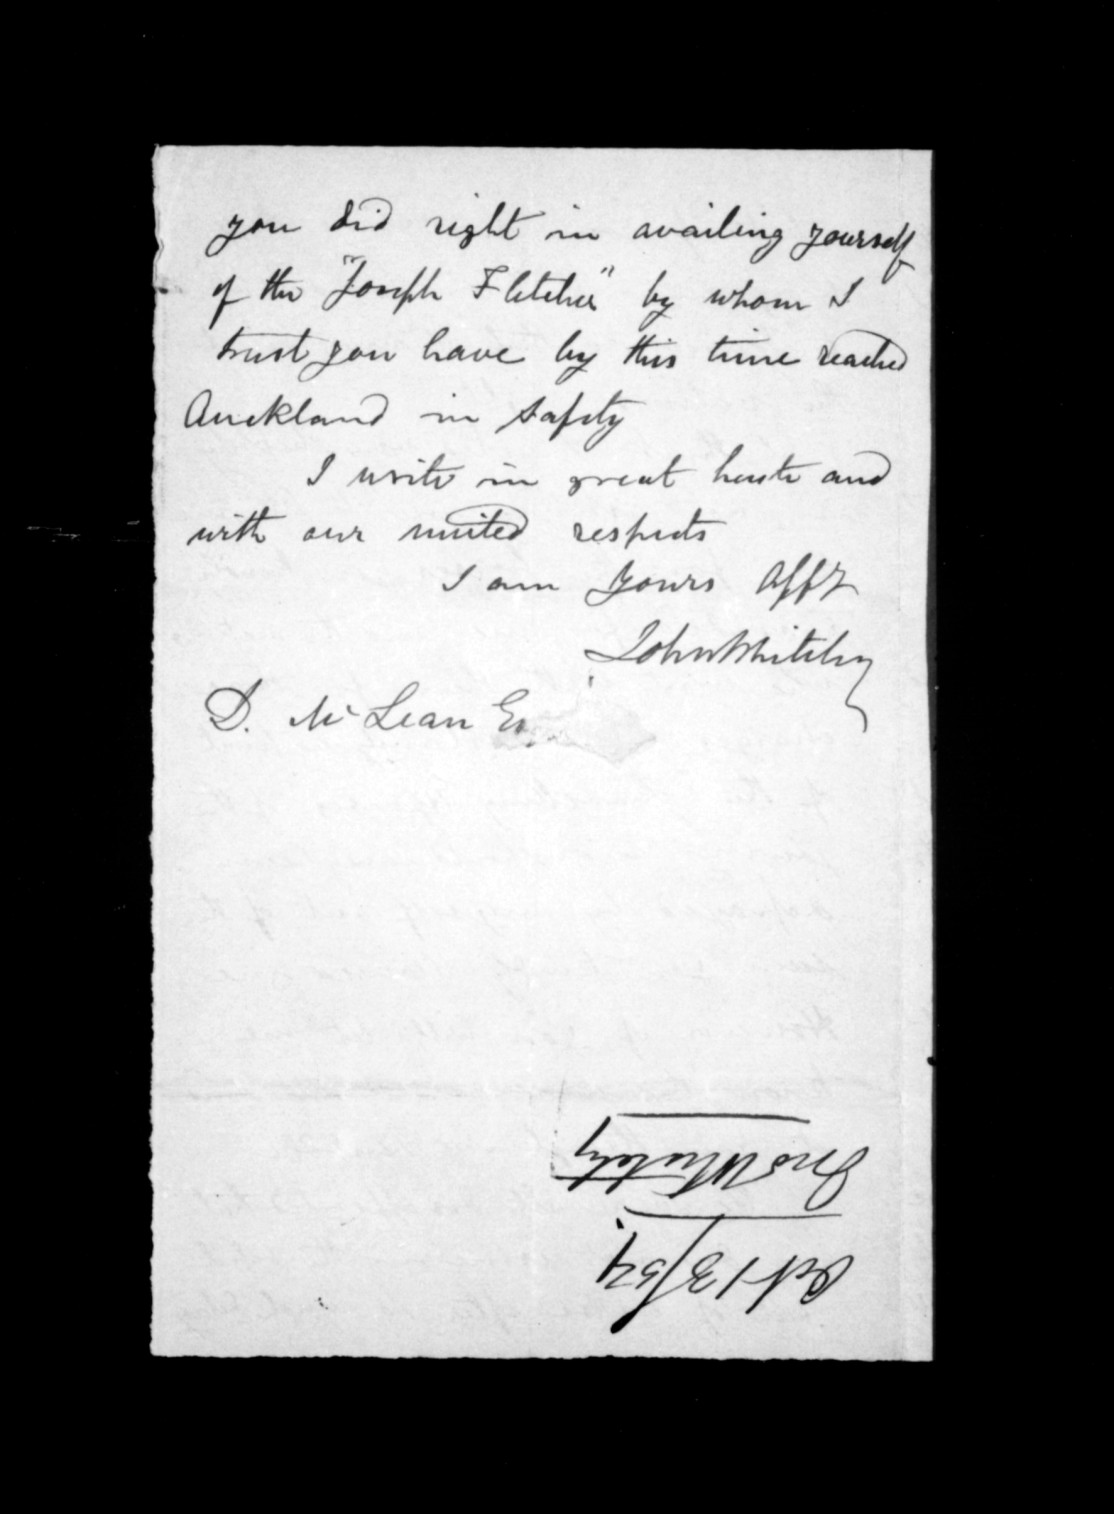 you did right in availing yourself
of the "Joseph Fletcher" by whom I
trust you have by this time reached
Auckland in safety
I write in great haste and
with our united respects
I am yours affy
John Whiteley
D. McLean Es
Jno Whiteley
Oct 13/54